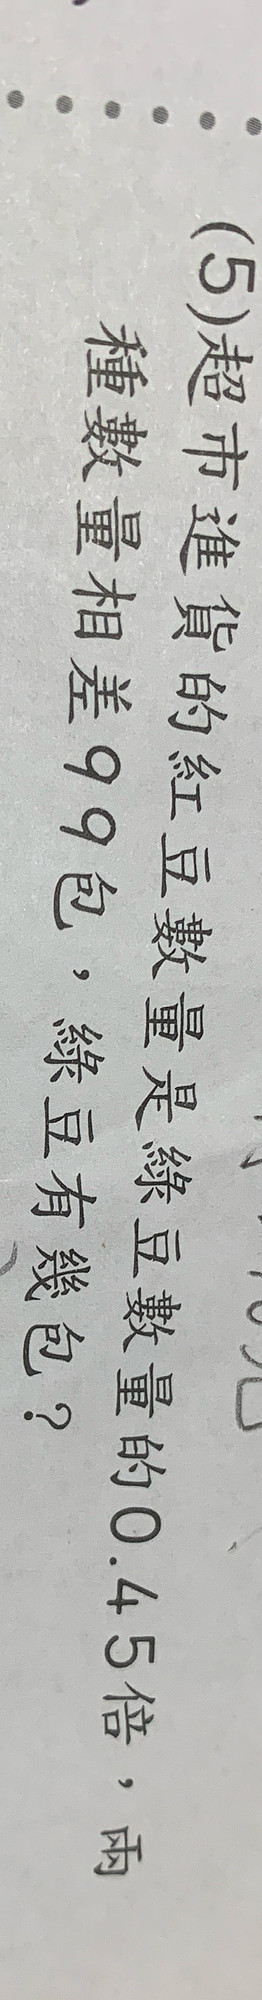 (5)超市進貨的紅豆數量是綠豆數量的0.45倍，兩
種數量相差99包，綠豆有幾包？